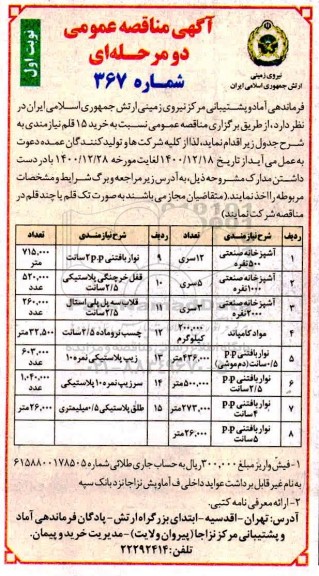 آگهی مناقصه عمومی
دو مرحله‌ای
شماره ۳۶۷
نوبت اول
نیروی زمینی
ارتش جمهوری اسلامی ایران
فرماندهی آماد و پشتیبانی مرکز نیروی زمینی ارتش جمهوری اسلامی ایران در
نظر دارد، از طریق برگزاری مناقصه عمومی نسبت به خرید ۱۵ قلم نیازمندی به
شرح جدول زیر اقدام نماید، لذا از کلیه شرکت ها و تولید کنندگان عمده دعوت
به عمل می آید از تاریخ ۱۴۰۰/۱۲/۱۸ لغایت مورخه ۱۴۰۰/۱۲/۲۸ با در دست
داشتن مدارک مشروحه ذیل، به آدرس زیر مراجعه و برگ شرایط و مشخصات
مربوطه را اخذ نمایند.(متقاضیان مجاز می باشند به صورت تک قلم یا چند قلم در
مناقصه شرکت نمایند)
ردیف شرح نیازمندی تعداد ردیف شرح نیازمندی تعداد
۱ آشپزخانه صنعتی ۵۰۰ نفره ۱۲سری ۹ نوار بافتنی p.p ۲ سانت ۷۱۵,۰۰۰ متر
۲ آشپزخانه صنعتی ۱۰۰۰ نفره ۵سری ۱۰ قفل خرچنگی پلاستیکی ۲/۵ سانت ۵۲۰,۰۰۰ عدد
۳ آشپزخانه صنعتی ۲۰۰۰ نفره ۳سری ۱۱ قلاب سه پل پلی استال ۲/۵ سانت ۲۶۰,۰۰۰ عدد
۴ مواد کامپاند ۲۰۰,۰۰۰ کیلوگرم ۱۲ چسب نر و ماده ۲/۵ سانت ۳۲,۵۰۰متر
۵ نوار بافتنی p.p ۰/۵ سانت(دم موشی) ۴۳۶,۰۰۰متر ۱۳ زیپ پلاستیکی نمره ۱۰ ۶۰۳,۰۰۰ عدد
۶ نوار بافتنی p.p ۲/۵ سانت ۵۰۰,۰۰۰متر ۱۴ سرزیپ نمره ۱۰ پلاستیکی ۱,۰۴۰,۰۰۰ عدد
۷ نوار بافتنی p.p ۴ سانت ۲۷۳,۰۰۰متر ۱۵ طلق پلاستیکی ۰/۵ میلیمتری ۲۶,۰۰۰متر
۸ نوار بافتنی p.p ۵ سانت ۲۶,۰۰۰متر
۱- فیش واریز مبلغ ۳۰۰,۰۰۰ ریال به حساب جاری طلائی شماره ۶۱۵۸۸۰۰۱۷۸۵۰۵
به نام غیر قابل برداشت عواید داخلی ف آماد پش نزاجا نزد بانک سپه
۲- ارائه معرفی نامه کتبی.
آدرس: تهران- اقدسیه- ابتدای بزرگراه ارتش- پادگان فرماندهی آماد
و پشتیبانی مرکز نزاجا (پیروان ولایت) - مدیریت خرید و پیمان.
تلفن: ۲۲۲۹۲۴۱۴